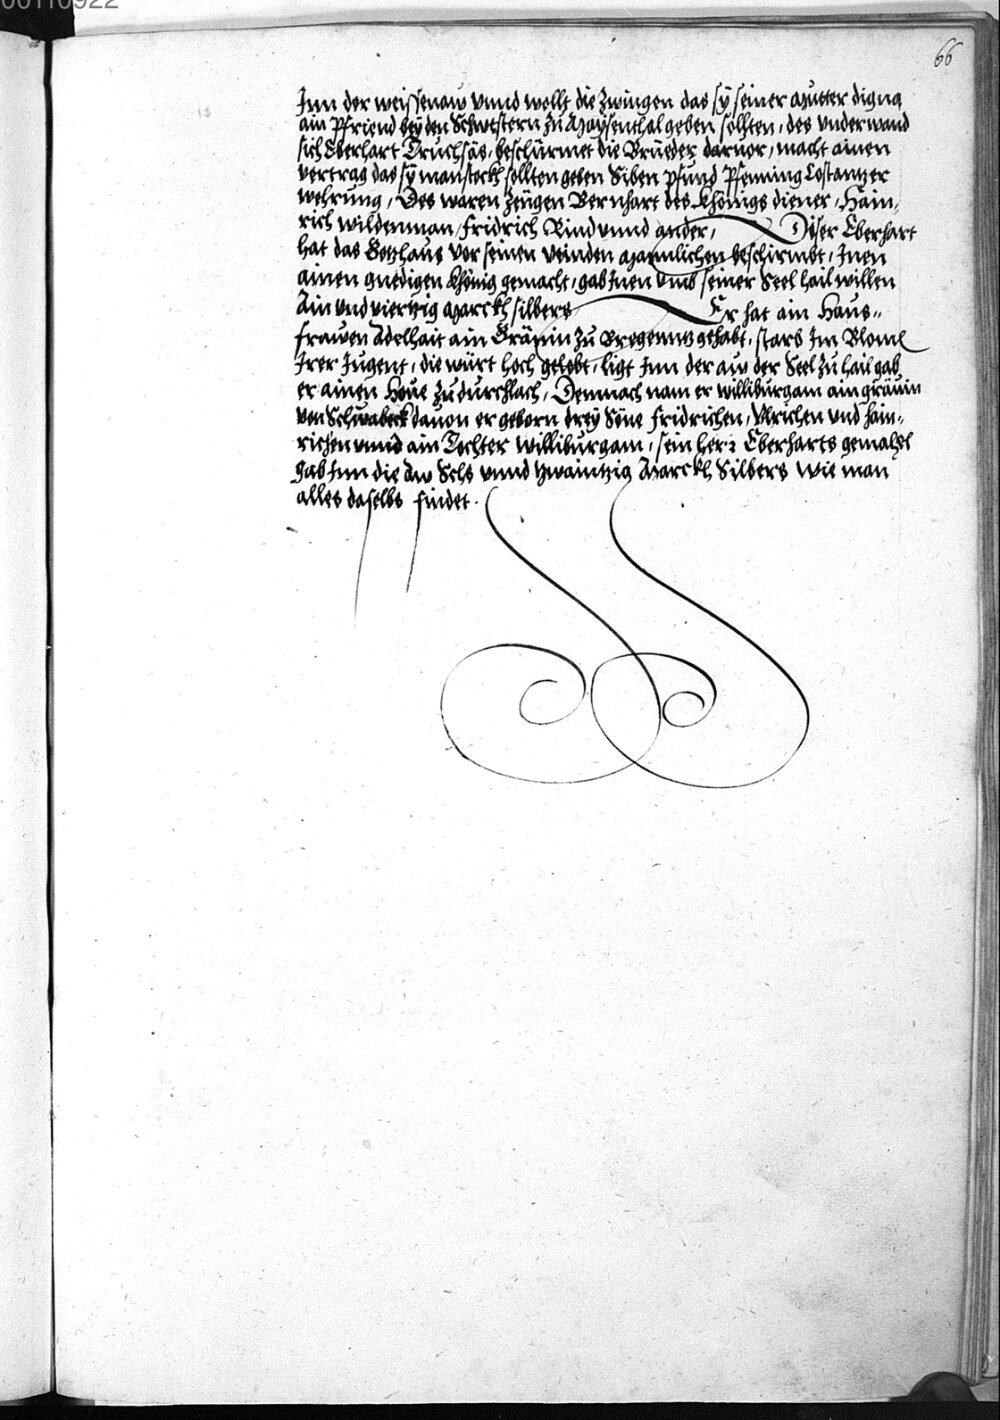 00110922
66
Inn der weissenaw vnnd wollt die zwingen das sÿ seiner Mutter digna
ain Pfriend beÿ den Schwestern zu Maÿsenthal geben sollten, des vnderwand
sich Eberhart Truchsäs, beschürmet die Brüeder daruor, macht ainen
vertrag das sÿ manstockh sollten geben Siben pfund Pfenning Costantzer
wehrung, Des waren zeügen Bernhart des Khönigs diener, Hain,
rich wildenman, fridrich Rind vnnd ander, Diser Eberhart
hat das Gotzhaus vor seinen veinden Mannlichen beschirmbt, Inen
ainen gnedigen Khönig gemacht, gab Inen vmb seiner Seel hail willen
Ain vnd viertzig Marckh silbers Er hat ain Haus-
frawen Adelhait ain Gräuin zu Bregenntz gehabt, starb Im Bloml
Irer Jugent, die würt hoch gelobt, ligt Inn der aw der Seel zu hail gab
er ainen Houe zu durchlach, Demnach nam er williburgam ain gräuin
von Schwabeck dauon er geborn dreÿ Söne fridrichen, Vlrichen vnd hain-
richen vnnd ain Tochter williburgam, sein her: Eberharts gemahel
gab Inn die Aw Sehs vnnd zwaintzig Marckh Silbers wie man
alles daselbs findet.